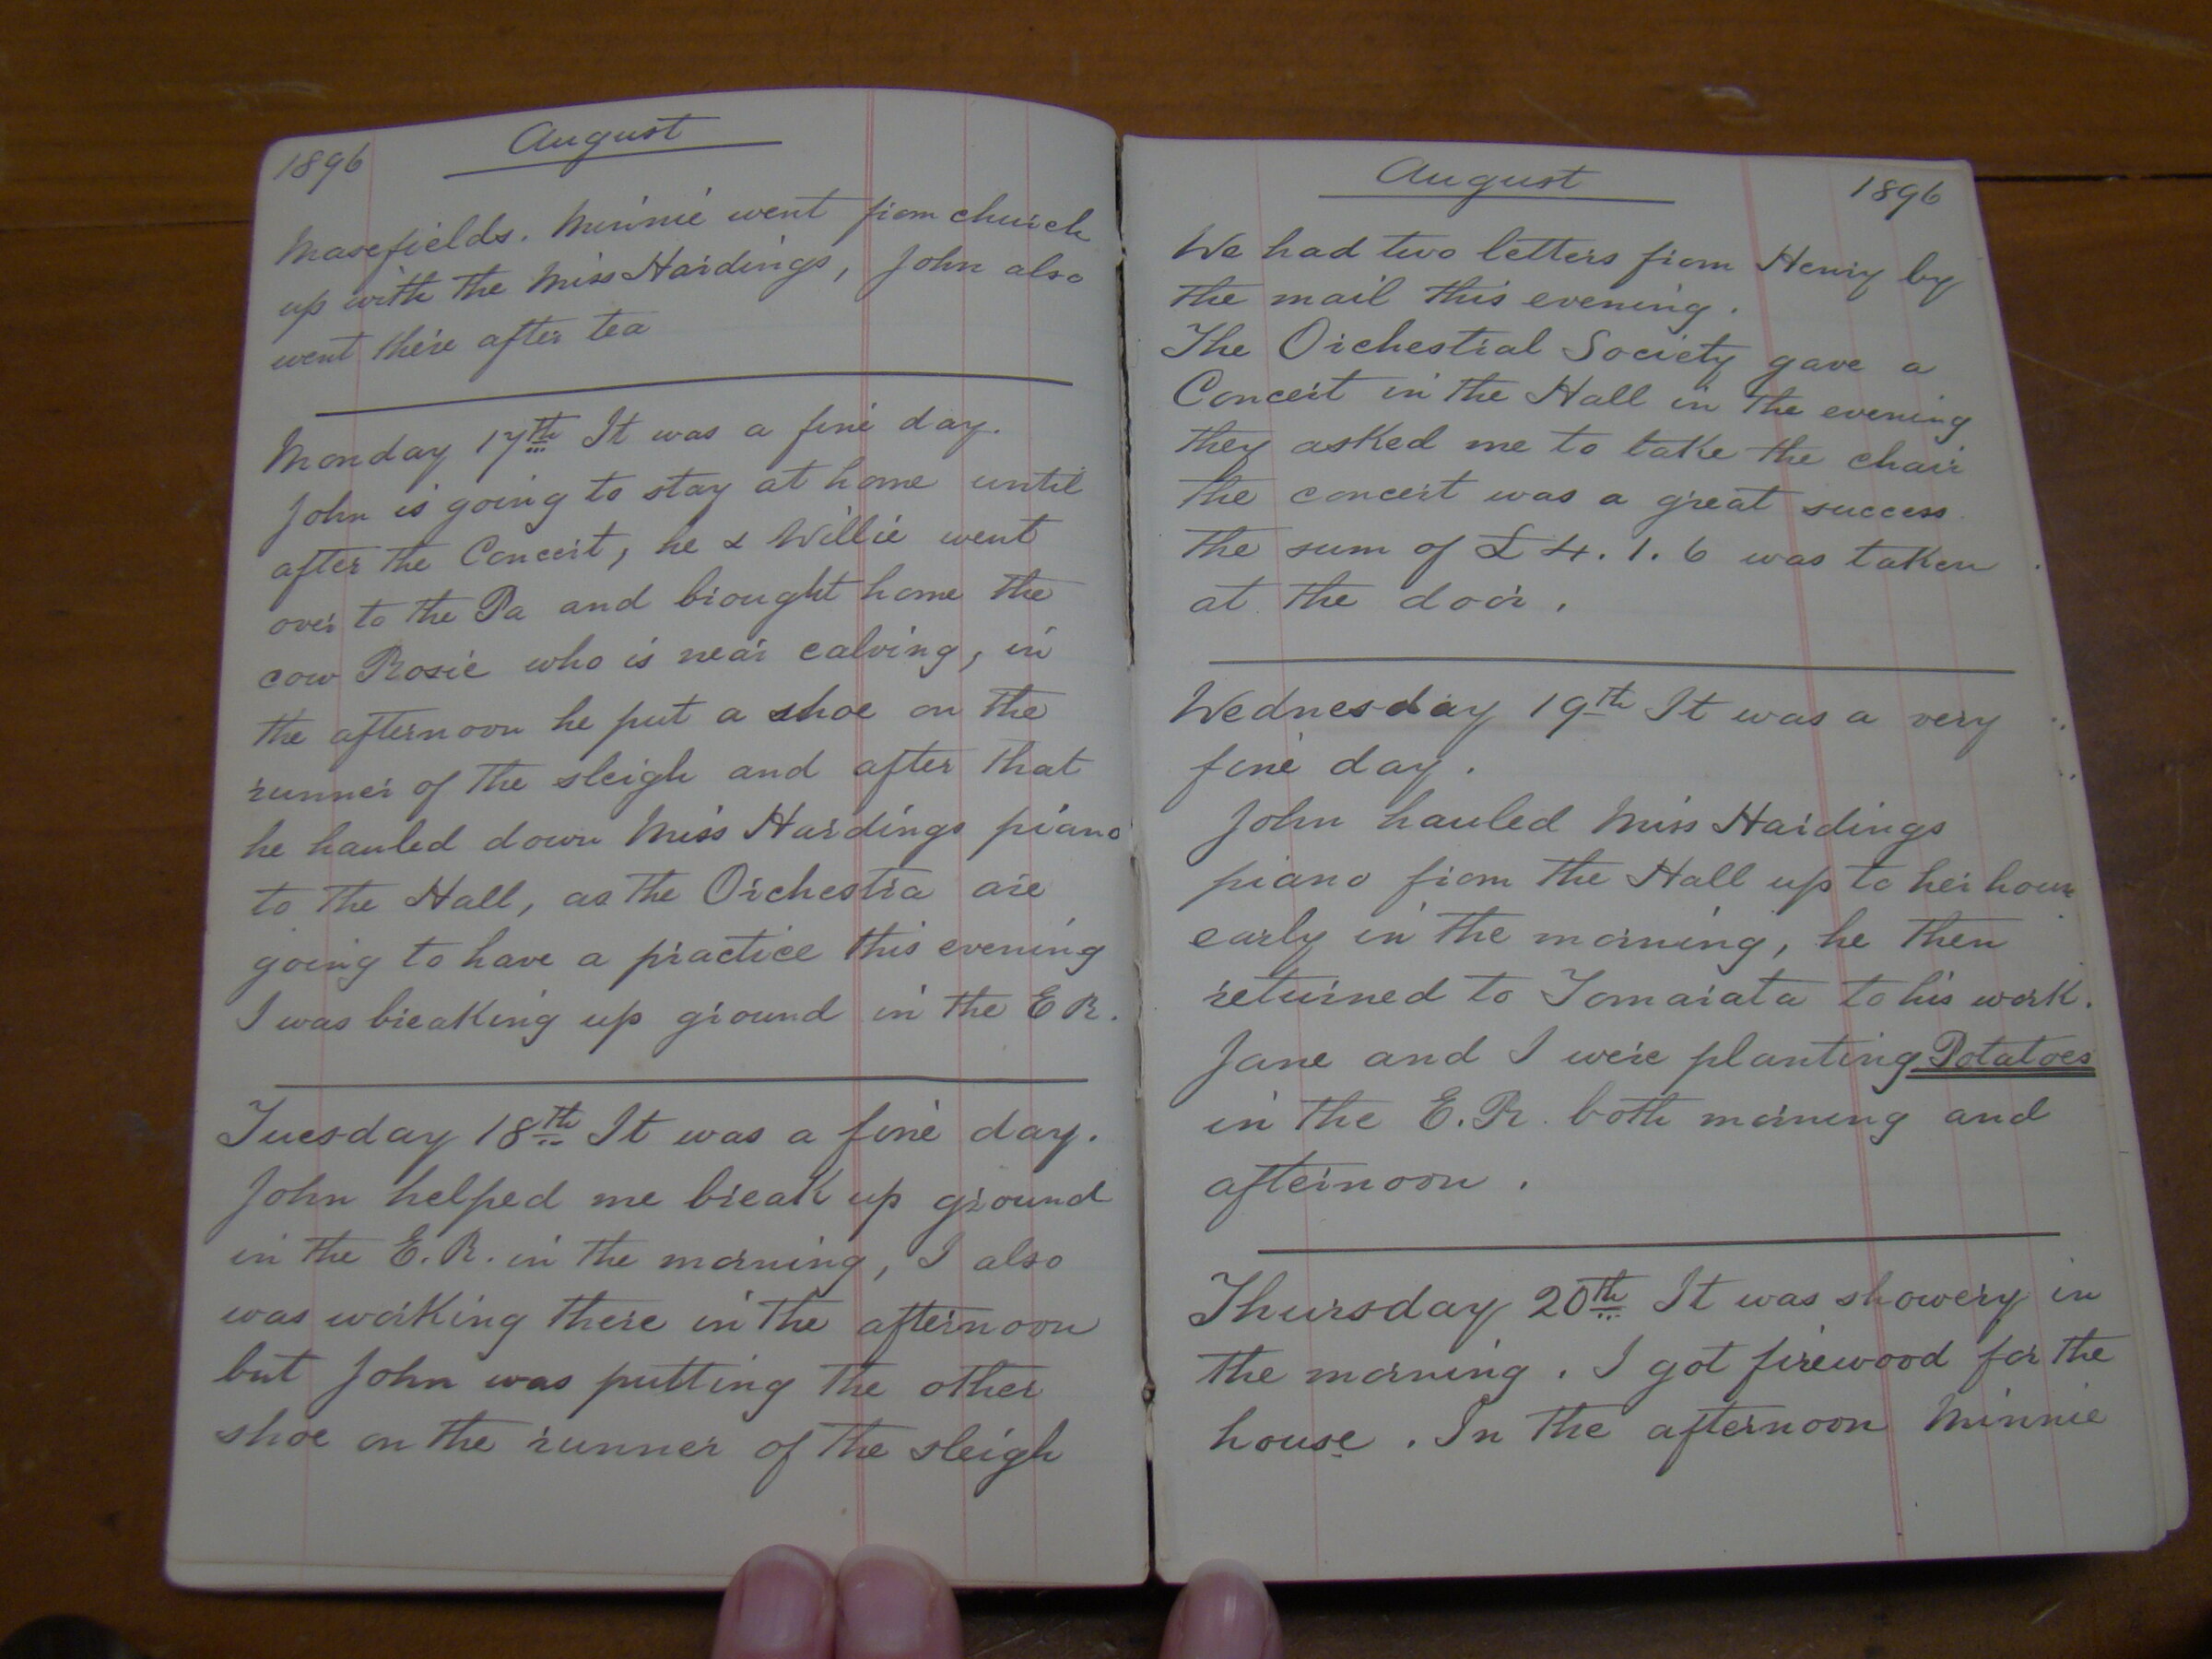 1896
August
Masefields. Minnie went from church
up with the Miss Hardings, John also
went there after tea
Monday 17th It was a fine day.
John is going to stay at home until
after the Concert, he & Willie went
over to the Pa and brought home the
cow Rosie who is near calving, in
the afternoon he put a shoe on the
runner of the sleigh and after that
he hauled down Miss Hardings piano
to the Hall, as the Orchestra are
going to have a practice this evening
I was breaking up ground in the E R.
Tuesday 18th It was a fine day.
John helped me break up ground
in the E. R. in the morning, I also
was working there in the afternoon
but John was putting the other
shoe on the runner of the sleigh
August
1896
We had two letters from Henry by
the mail this evening.
The Orchestral Society gave a
Concert in the Hall in the evening
they asked me to take the chair
the concert was a great success
the sum of £4. 1. 6 was taken
at the door.
Wednesday 19th It was a very
fine day.
John hauled Miss Hardings
piano from the Hall up to her house
early in the morning, he then
returned to Tomarata to his work.
Jane and I were planting Potatoes
in the E. R. both morning and
afternoon.
Thursday 20th It was showery in
the morning. I got firewood for the
house. In the afternoon Minnie